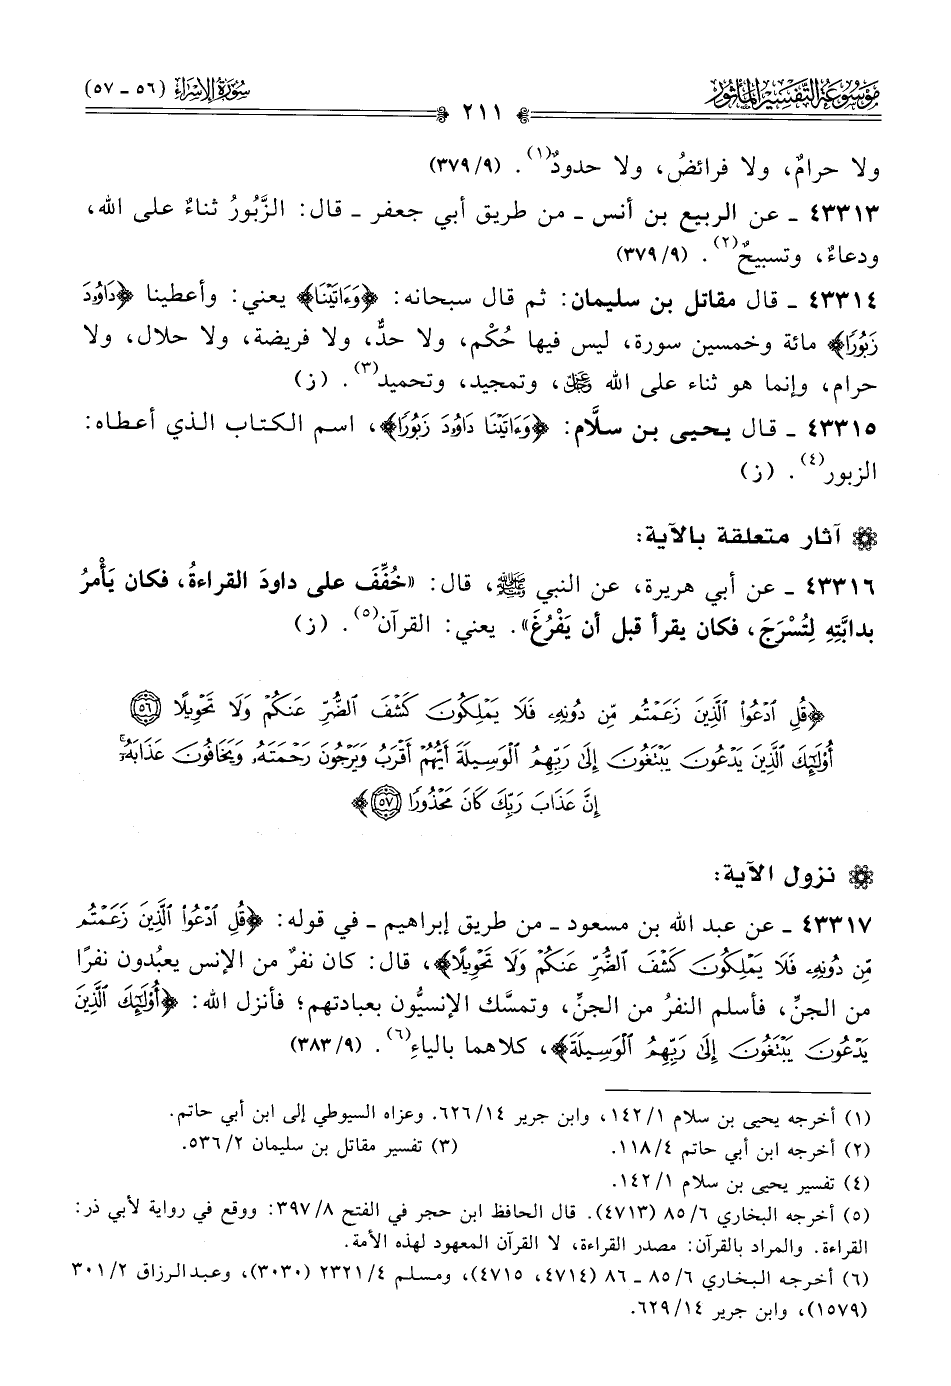 موسوعة التفسير المأثور
سورة الإسراء (٥٦ - ٥٧)
٢١١
ولا حرامٌ، ولا فرائضُ، ولا حدودٌ(١). (٣٧٩/٩)
٤٣٣١٣ - عن الربيع بن أنس - من طريق أبي جعفر - قال: الزَّبُورُ ثناءٌ على الله،
ودعاءٌ، وتسبيحٌ(٢). (٣٧٩/٩)
٤٣٣١٤ - قال مقاتل بن سليمان: ثم قال سبحانه: ﴿وَءَاتَيْنَا﴾ يعني: وأعطينا ﴿دَاوُۥدَ
زَبُورًا﴾ مائة وخمسين سورة، ليس فيها حُكْم، ولا حدٌّ، ولا فريضة، ولا حلال، ولا
حرام، وإنما هو ثناء على الله ﷿، وتمجيد، وتحميد(٣). (ز)
٤٣٣١٥ - قال يحيى بن سلَّام: ﴿وَءَاتَيْنَا دَاوُۥدَ زَبُورًا﴾، اسم الكتاب الذي أعطاه:
الزبور(٤). (ز)
آثار متعلقة بالآية:
٤٣٣١٦ - عن أبي هريرة، عن النبي ﷺ، قال: «خُفِّفَ على داودَ القراءةُ، فكان يَأْمرُ
بدابَّتِهِ لِتُسْرَجَ، فكان يقرأ قبل أن يَفْرُغَ». يعني: القرآن(٥). (ز)
﴿قُلِ ٱدْعُوا۟ ٱلَّذِينَ زَعَمْتُم مِّن دُونِهِۦ فَلَا يَمْلِكُونَ كَشْفَ ٱلضُّرِّ عَنكُمْ وَلَا تَحْوِيلًا ٥٦
أُو۟لَٰٓئِكَ ٱلَّذِينَ يَدْعُونَ يَبْتَغُونَ إِلَىٰ رَبِّهِمُ ٱلْوَسِيلَةَ أَيُّهُمْ أَقْرَبُ وَيَرْجُونَ رَحْمَتَهُۥ وَيَخَافُونَ عَذَابَهُۥٓ ۚ
إِنَّ عَذَابَ رَبِّكَ كَانَ مَحْذُورًا ٥٧﴾
نزول الآية:
٤٣٣١٧ - عن عبد الله بن مسعود - من طريق إبراهيم - في قوله: ﴿قُلِ ٱدْعُوا۟ ٱلَّذِينَ زَعَمْتُم
مِّن دُونِهِۦ فَلَا يَمْلِكُونَ كَشْفَ ٱلضُّرِّ عَنكُمْ وَلَا تَحْوِيلًا﴾، قال: كان نفرٌ من الإنس يعبُدون نفرًا
من الجنِّ، فأسلم النفرُ من الجنِّ، وتمسَّك الإنسيُّون بعبادتهم؛ فأنزل الله: ﴿أُو۟لَٰٓئِكَ ٱلَّذِينَ
يَدْعُونَ يَبْتَغُونَ إِلَىٰ رَبِّهِمُ ٱلْوَسِيلَةَ﴾، كلاهما بالياءِ(٦). (٣٨٣/٩)
(١) أخرجه يحيى بن سلام ١٤٢/١، وابن جرير ٦٢٦/١٤. وعزاه السيوطي إلى ابن أبي حاتم.
(٢) أخرجه ابن أبي حاتم ١١٨/٤. (٣) تفسير مقاتل بن سليمان ٥٣٦/٢.
(٤) تفسير يحيى بن سلام ١٤٢/١.
(٥) أخرجه البخاري ٨٥/٦ (٤٧١٣). قال الحافظ ابن حجر في الفتح ٣٩٧/٨: ووقع في رواية لأبي ذر:
القراءة. والمراد بالقرآن: مصدر القراءة، لا القرآن المعهود لهذه الأمة.
(٦) أخرجه البخاري ٨٥/٦ - ٨٦ (٤٧١٤، ٤٧١٥)، ومسلم ٢٣٢١/٤ (٣٠٣٠)، وعبدالرزاق ٣٠١/٢
(١٥٧٩)، وابن جرير ٦٢٩/١٤.